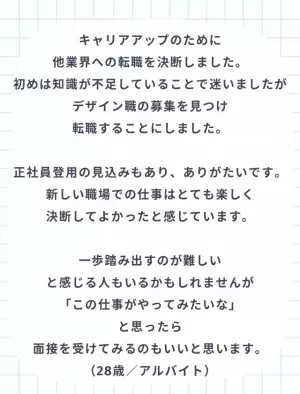 キャリアアップのために
他業界への転職を決断しました。
初めは知識が不足していることで迷いましたが
デザイン職の募集を見つけ
転職することにしました。
正社員登用の見込みもあり、ありがたいです。
新しい職場での仕事はとても楽しく
決断してよかったと感じています。
一歩踏み出すのが難しい
と感じる人もいるかもしれませんが
「この仕事がやってみたいな」
と思ったら
面接を受けてみるのもいいと思います。
（28歳／アルバイト）